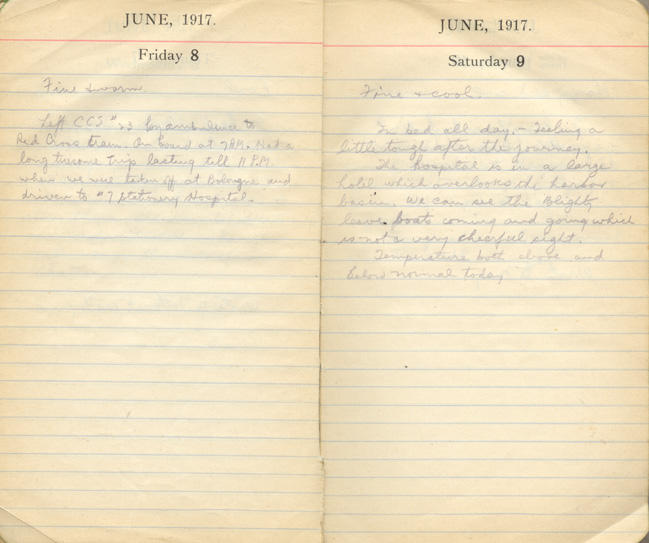 JUNE, 1917.
Friday 8
Fine & warm
Left CCS # 23 by ambulance to
Red Cross train. On board at 7AM. Had a
long tiresome trip lasting till 11 P.M.
when we were taken off at Bologne and
driven to #7 Stationery Hospital.
JUNE, 1917.
Saturday 9
Fine & cool.
In bed all day, - Feeling a
little tough after the journey.
The hospital is in a large
hotel which overlooks the harbor
basin. We can see the Blighty
leave boats coming and going which
is not a very cheerful sight.
Temperature both above and
below normal today